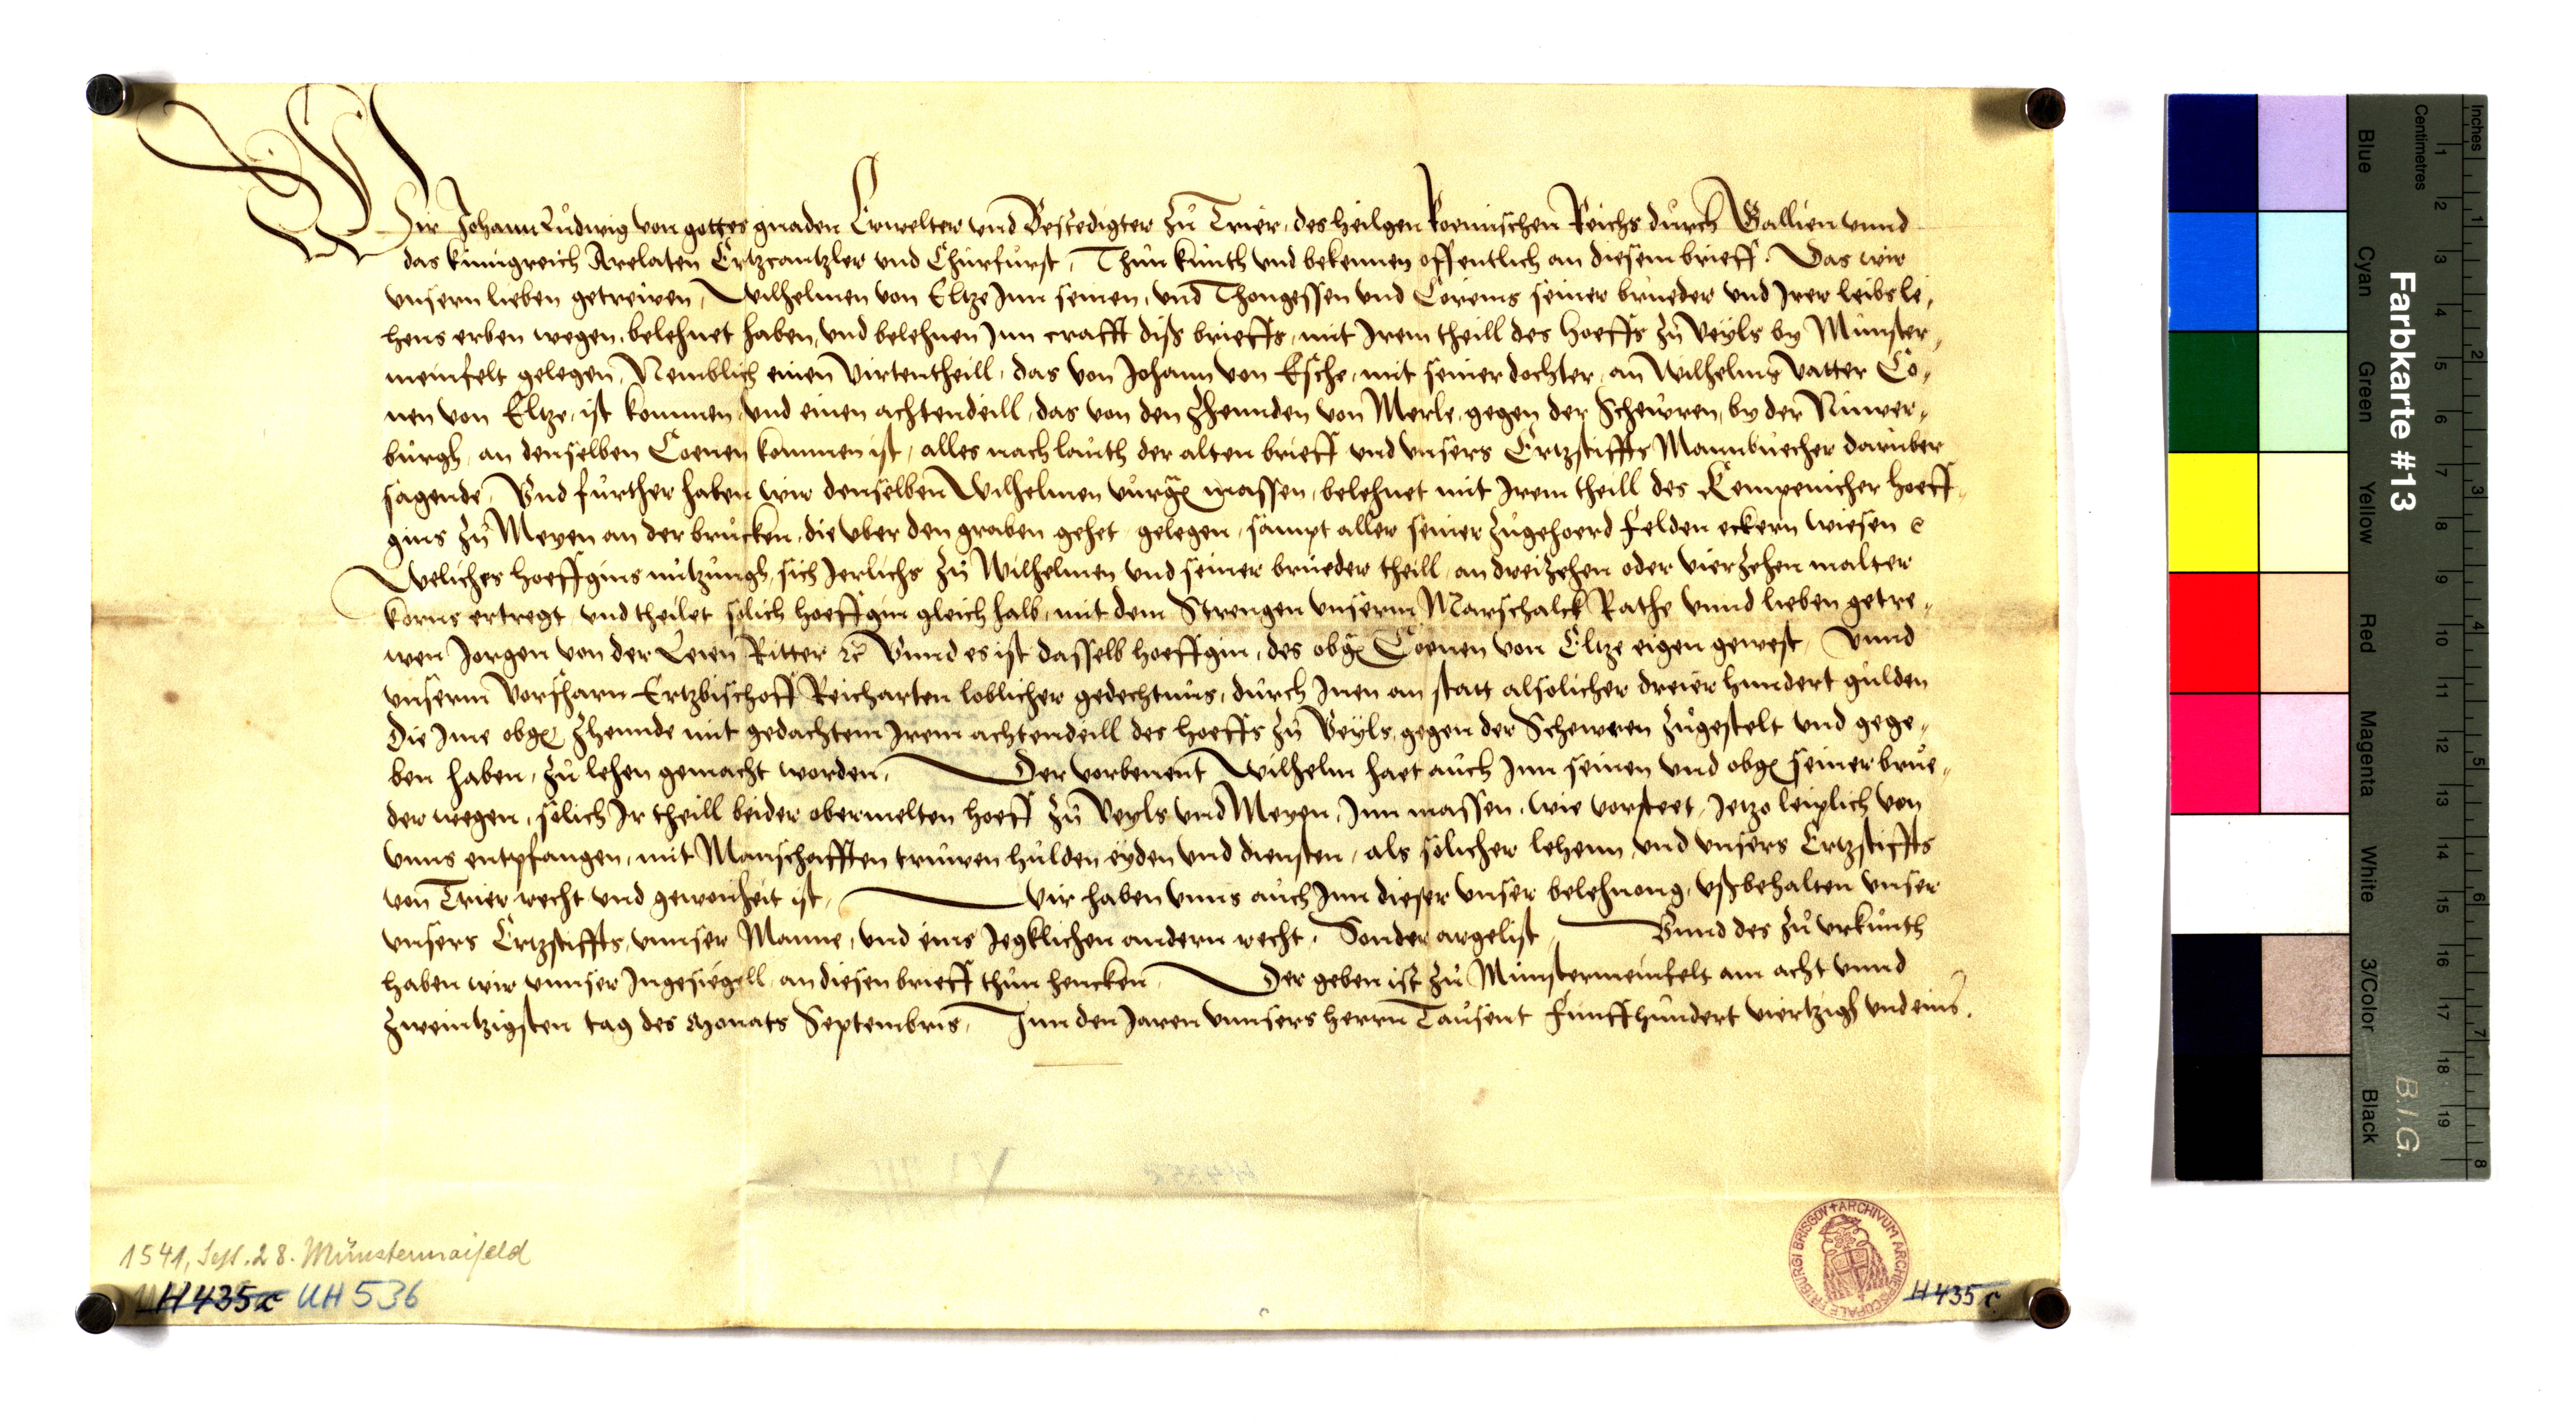 Wir Johann Ludwig von gottes gnaden Erwelter vnd Bestedigter zů Trier, des heilgen Roemischen Reichs durch Gallien vnnd
das künigreich Arelaten Ertzcantzler vnd Churfurst, Thun kunth vnd bekennen offentlich an diesem brieff. Das wir
vnsern lieben getreiwen, Wilhelmen von Eltze Inn seinen, vnd Thongessen vnd Coreins seiner brueder vnd Irer leibsle,
hens erben wegen, belehnet haben, vnd belehnen Inn crafft diß brieffs, mit Irem theill des hoeffs zů Veyls by Münster,
meinfelt gelegen, Nemblich einen Virtentheill, das von Johann von Esche, mit seiner dochter, an Wilhelms vatter Co,
nen von Eltze, ist kommen, vnd einen achtendeill, das von den Zhennden von Merle, gegen der Schewren, by der Nuwer,
burgh, an denselben Coenen kommen ist, alles nach lauth der alten brieff vnd vnsers Ertzstiffts Mannbuecher daruber
sagende, Vnd further haben wir denselben Wilhelmen vurg massen, belehnet mit Irem theill des Kempenicher hoeff,
gins zů Meyen an der brucken, die vber den graben gehet, gelegen, sampt aller seiner zůgehoerd felden eckern wiesen c
Weliches hoeffgins nutzungh, sich Jerlichs zů Wilhelmen vnd seiner brueder theill, an dreizehen oder vierzehen malter
korns ertregt, vnd theilet solich hoeffgin gleich halb, mit dem Strengen vnserm Marschalck Rathe vnnd lieben getre,
wen Jorgen von der Leien Ritter ꝛc Vnnd es ist dasselb hoeffgin, des obg Coenen von Eltze eigen gewest, Vnnd
vnserm Vorfharn Ertzbischoff Reicharten loblicher gedechtnus, durch Inen an statt alsolicher dreier hundert gulden
Die Ime obg Zhennde mit gedachtem Irem achtendeill des hoeffs zů Veyls, gegen der Schewren zůgestelt vnd gege,
ben haben, zů lehen gemacht worden. Der vorbenent Wilhelm haet auch Inn seinen vnd obg seiner brue,
der wegen, solich Ir theill beider obermelten hoeff zů Veyls vnd Meyen, Inn massen, wie vorsteet, Jetzo leiplich von
vnns entpfangen, mit Manschafften truwen hulden eyden vnd diensten, als solicher lehenn, vnd vnsers Ertzstiffts
von Trier recht vnd gewonheit ist, Wir haben vnns auch Inn dieser vnser belehnong, vßbehalten vnser
vnsers Ertzstiffts, vnnser Manne, vnd eins Jegklichen andern recht. Sonder argelist, Vnnd des zů vrkunth
haben wir vnnser Ingesiegell, an diesen brieff thun hencken, Der geben ist zů Münstermeinfelt am acht vnnd
zweintzigsten tag des Monats Septembris, Inn den Jaren vnnsers herrn Tausent funffhundert viertzigh vnd eins.
1541, Sept. 28. Münstermaifeld
H 435 c UH 536
FRIBURGI BRISGOV + ARCHIVUM ARCHIEPISCOPALE
H 435 c
Farbkarte #13
B.I.G.
Inches
Centimetres
1 2 3 4 5 6 7 8 9 10 11 12 13 14 15 16 17 18 19
1 2 3 4 5 6 7 8
Blue
Cyan
Green
Yellow
Red
Magenta
White
3/Color
Black